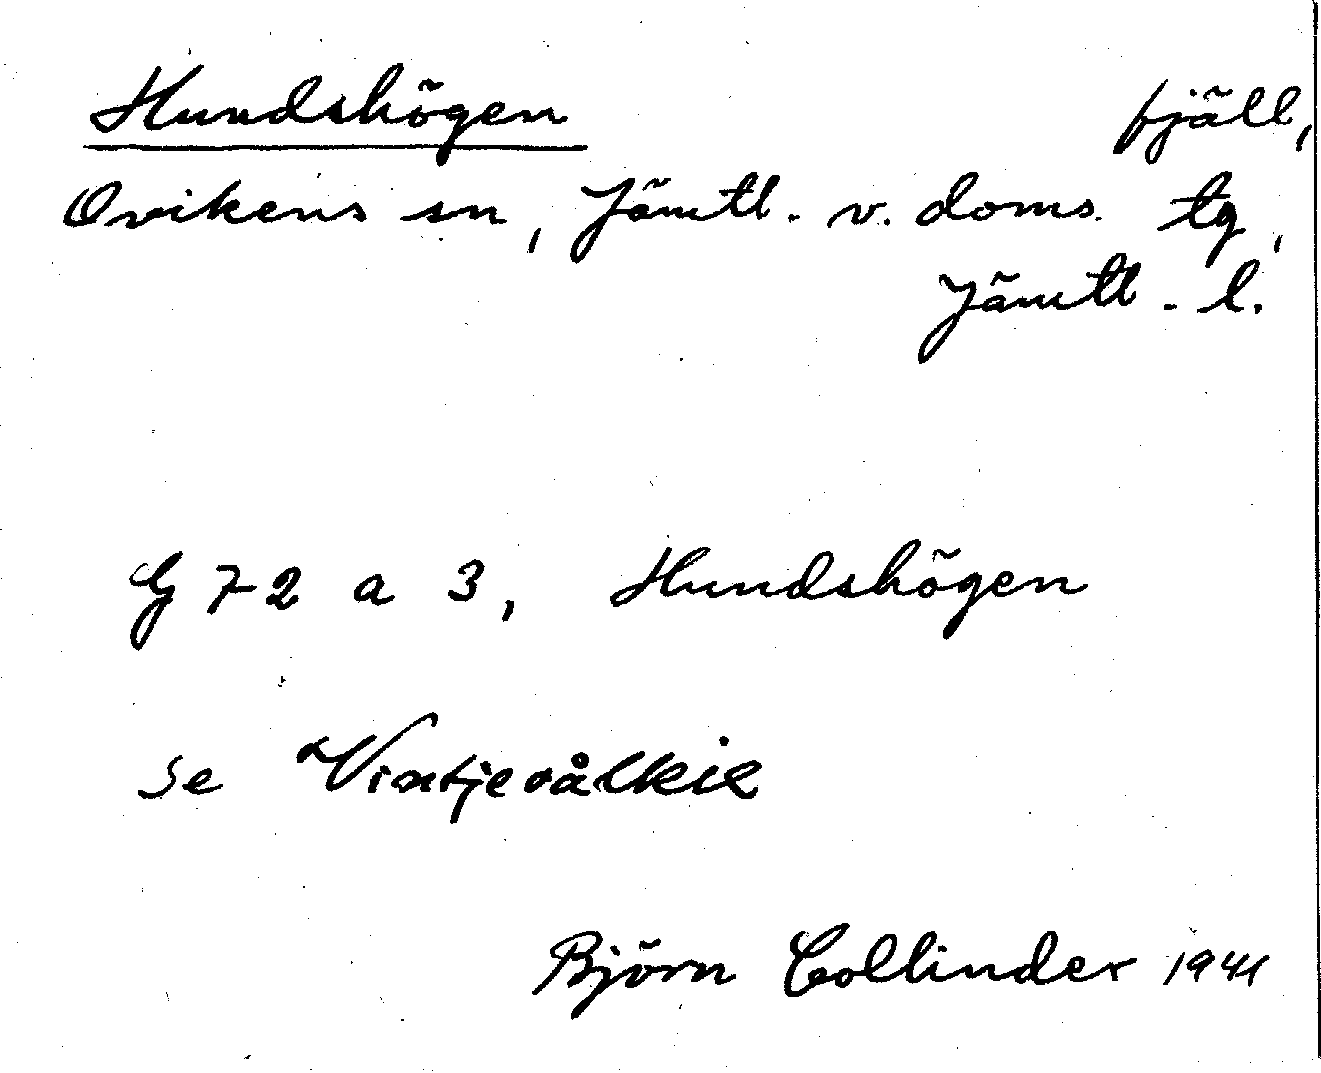 Hundshögen fjäll,
Ovikens sn, Jämtl. v. doms. tg,
Jämtl. l.
G 72 a 3, Hundshögen
se
Björn Collinder 1941